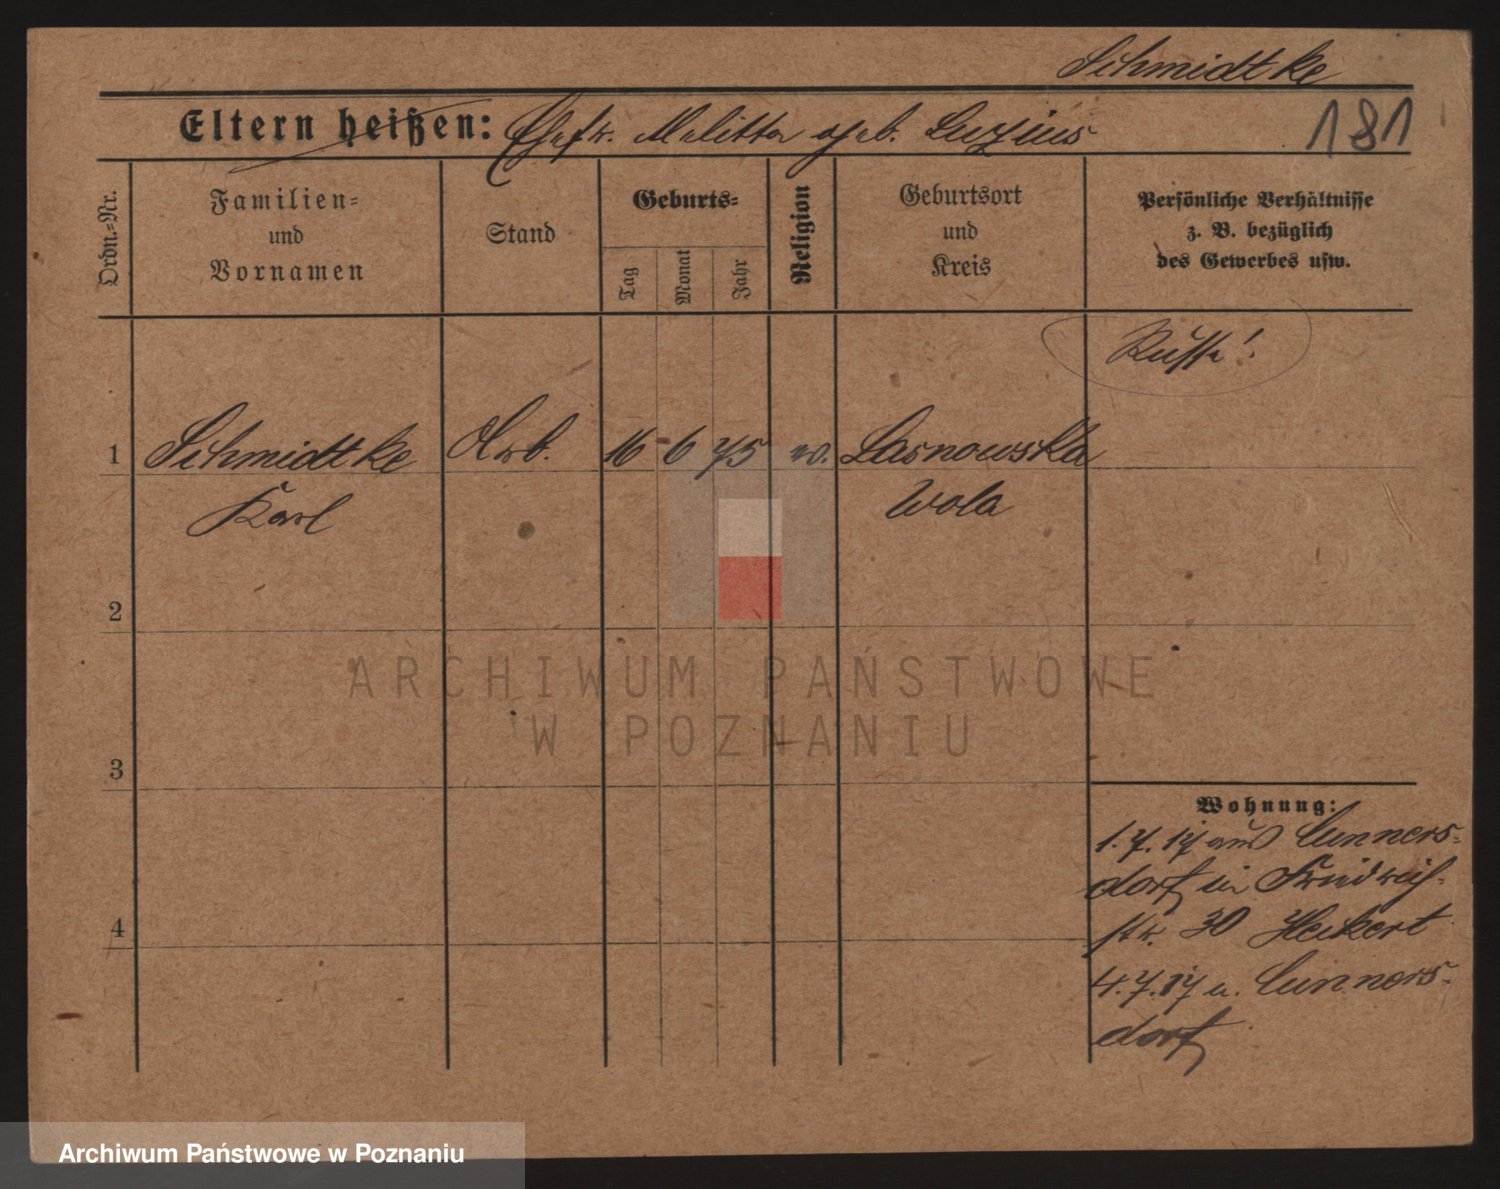 Schmidtke
Eltern heißen: Ehefr. Melitta geb. Luzius
181
Ordn.-Nr.
Familien-
und
Vornamen
Stand
Geburts-
Tag
Monat
Jahr
Religion
Geburtsort
und
Kreis
Persönliche Verhältnisse
z. B. bezüglich
des Gewerbes usw.
Russe!
1 Schmidtke Arb. 16 6 75 ev. Lasnowska
Karl Wola
2
3
4
Wohnung:
1.7.17 aus Cunners-
dorf in Friedrich-
str. 30 Heikert
4.7.17 n. Cunners-
dorf
ARCHIWUM PAŃSTWOWE
W POZNANIU
Archiwum Państwowe w Poznaniu